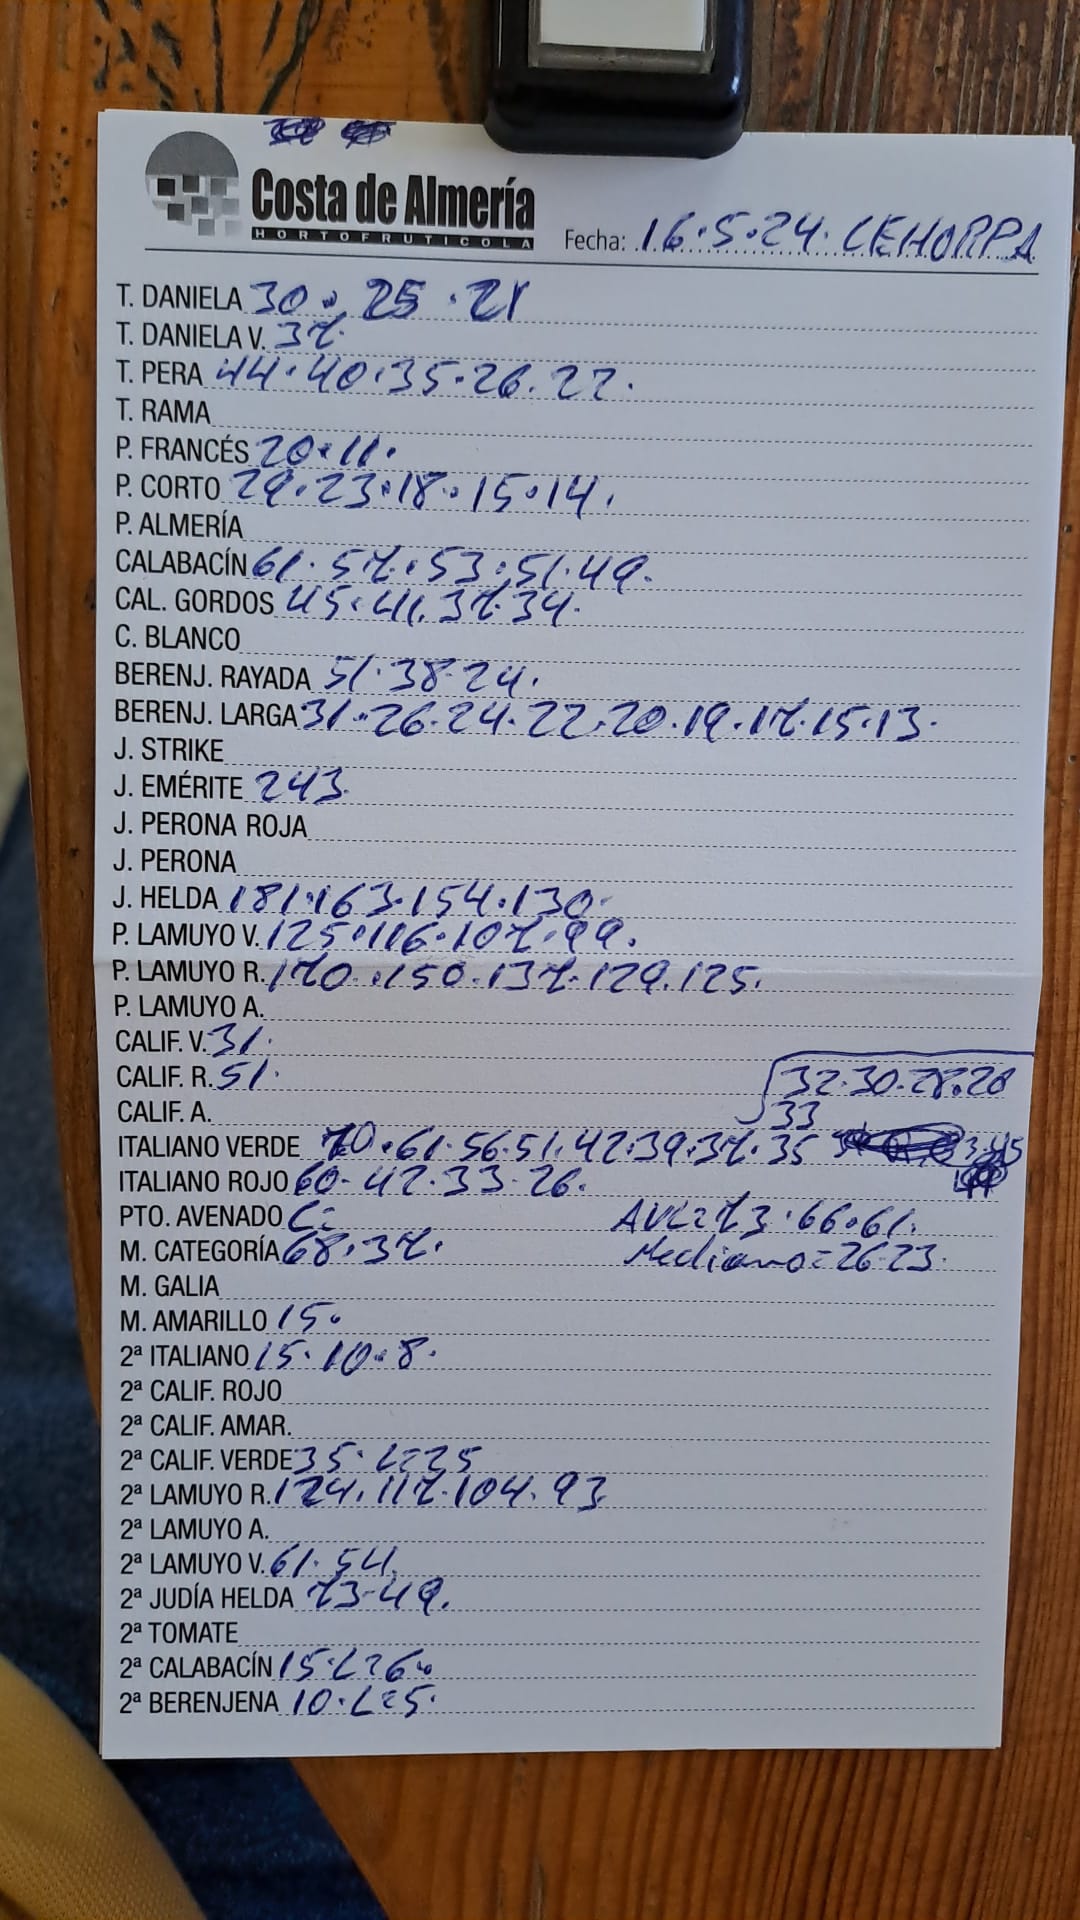 Costa de Almería
HORTOFRUTICOLA
Fecha: 16·5·24· CEHORPA
T. DANIELA 30·25·21
T. DANIELA V. 37·
T. PERA 44·40·35·26·22·
T. RAMA
P. FRANCÉS 20·11·
P. CORTO 29·23·18·15·14·
P. ALMERÍA
CALABACÍN 61·57·53·51·49·
CAL. GORDOS 45·41·37·34·
C. BLANCO
BERENJ. RAYADA 51·38·24·
BERENJ. LARGA 31·26·24·22·20·19·17·15·13·
J. STRIKE
J. EMÉRITE 243
J. PERONA ROJA
J. PERONA
J. HELDA 181·163·154·130·
P. LAMUYO V. 125·116·107·99·
P. LAMUYO R. 170·150·137·129·125·
P. LAMUYO A.
CALIF. V. 31·
CALIF. R. 51·
32·30·28·20
CALIF. A.
33
ITALIANO VERDE 70·61·56·51·42·39·37·35
ITALIANO ROJO 60·42·33·26·
PTO. AVENADO C= AVC=73·66·61·
M. CATEGORÍA 68·37· Mediano=26·23·
M. GALIA
M. AMARILLO 15·
2ª ITALIANO 15·10·8·
2ª CALIF. ROJO
2ª CALIF. AMAR.
2ª CALIF. VERDE 35·L=25
2ª LAMUYO R. 124·117·104·93
2ª LAMUYO A.
2ª LAMUYO V. 61·54
2ª JUDÍA HELDA 73·49·
2ª TOMATE
2ª CALABACÍN 15·L=6·
2ª BERENJENA 10·L=5·